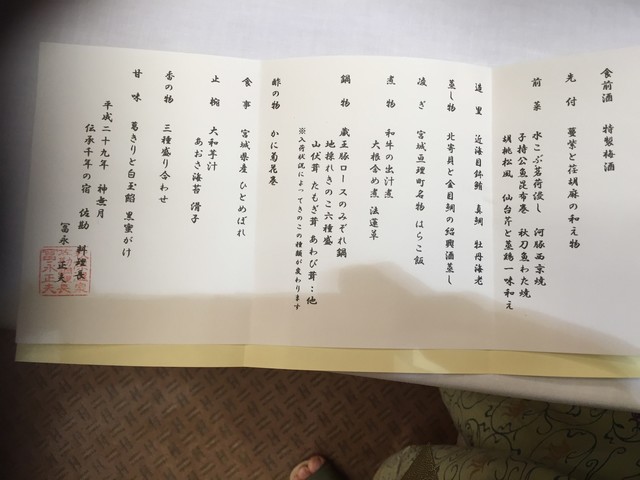 食前酒 特製梅酒
先付 蔓紫と荏胡麻の和え物
前菜 水こぶ茗荷浸し 河豚西京焼
子持公魚昆布巻 秋刀魚わた焼
胡桃松風 仙台芹と蒸鶏一味和え
造里 近海目鉢鮪 真鯛 牡丹海老
蒸し物 北寄貝と金目鯛の紹興酒蒸し
凌ぎ 宮城亘理町名物 はらこ飯
煮物 和牛の出汁煮
大根含め煮 法蓮草
鍋物 蔵王豚ロースのみぞれ鍋
地採れきのこ六種盛
山伏茸 たもぎ茸 あわび茸…他
※入荷状況によってきのこの種類が変わります
酢の物 かに菊花巻
食事 宮城県産 ひとめぼれ
止椀 大和芋汁
あおさ海苔 滑子
香の物 三種盛り合わせ
甘味 葛きりと白玉餡 黒蜜がけ
平成二十九年 神無月
伝承千年の宿 佐勘 料理長
冨永 正夫